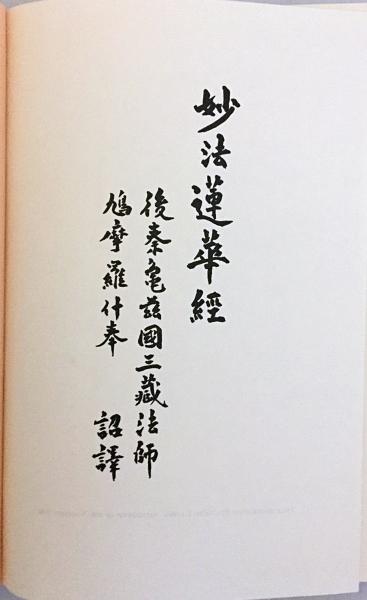 妙法蓮華經
後秦龜茲國三藏法師
鳩摩羅什奉 詔譯